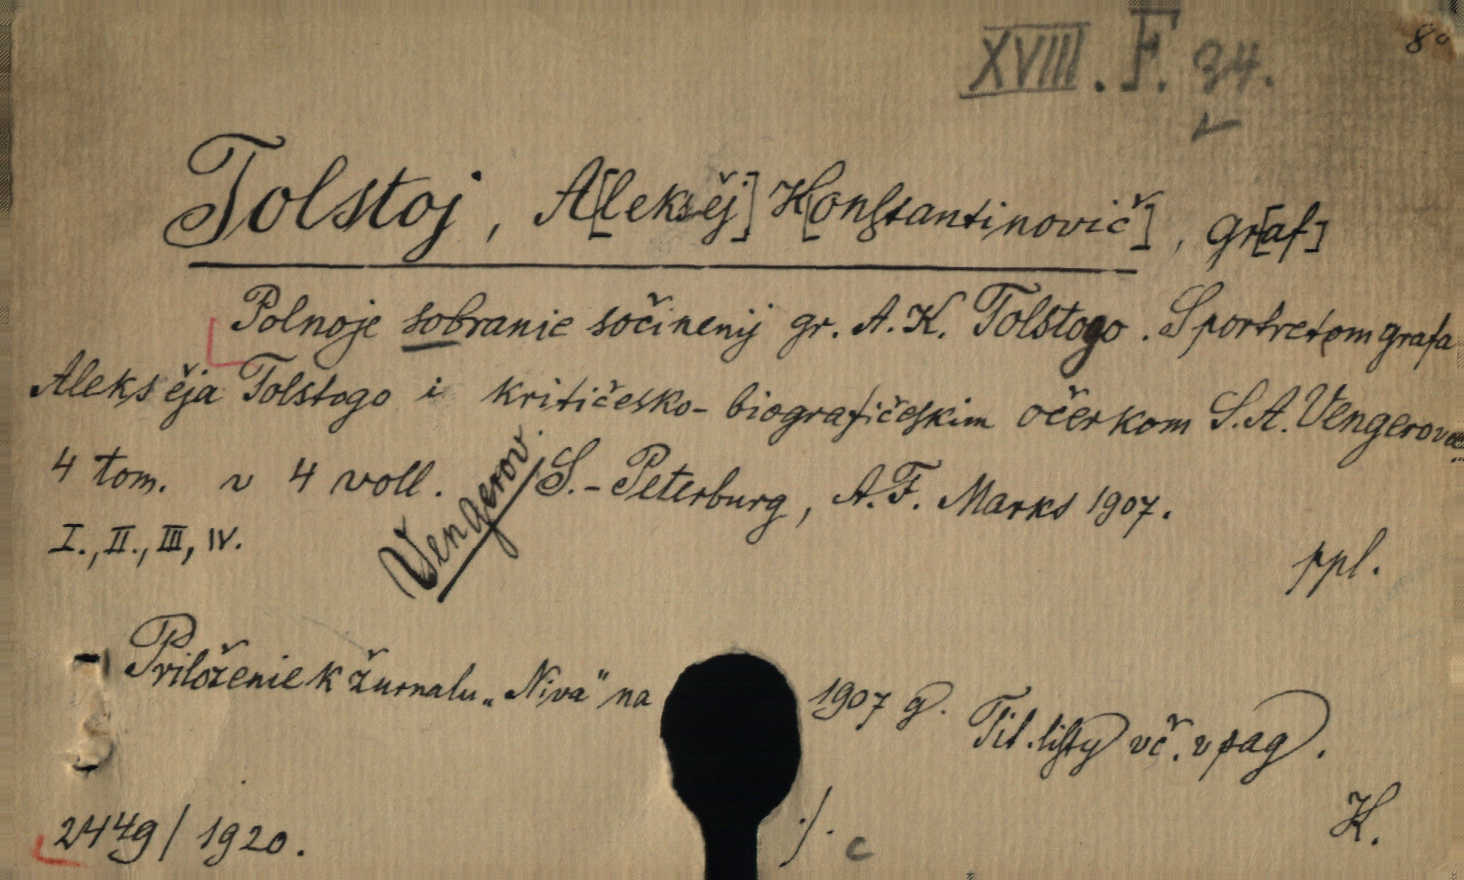 8°
XVIII. F. 34.
Tolstoj, A[leksěj] K[onstantinovič], gr[af]
Polnoje sobranie sočinenij gr. A. K. Tolstogo. S portretom grafa
Aleksěja Tolstogo i kritičesko-biografičeskim očerkom S. A. Vengerova
4 tom. v 4 voll. S.-Peterburg, A. F. Marks 1907.
Vengerov
I., II., III, IV.
ppl.
Priloženie k žurnalu „Niva" na 1907 g. Tit. listy vč. v pag.
K.
2449/1920.
./. c